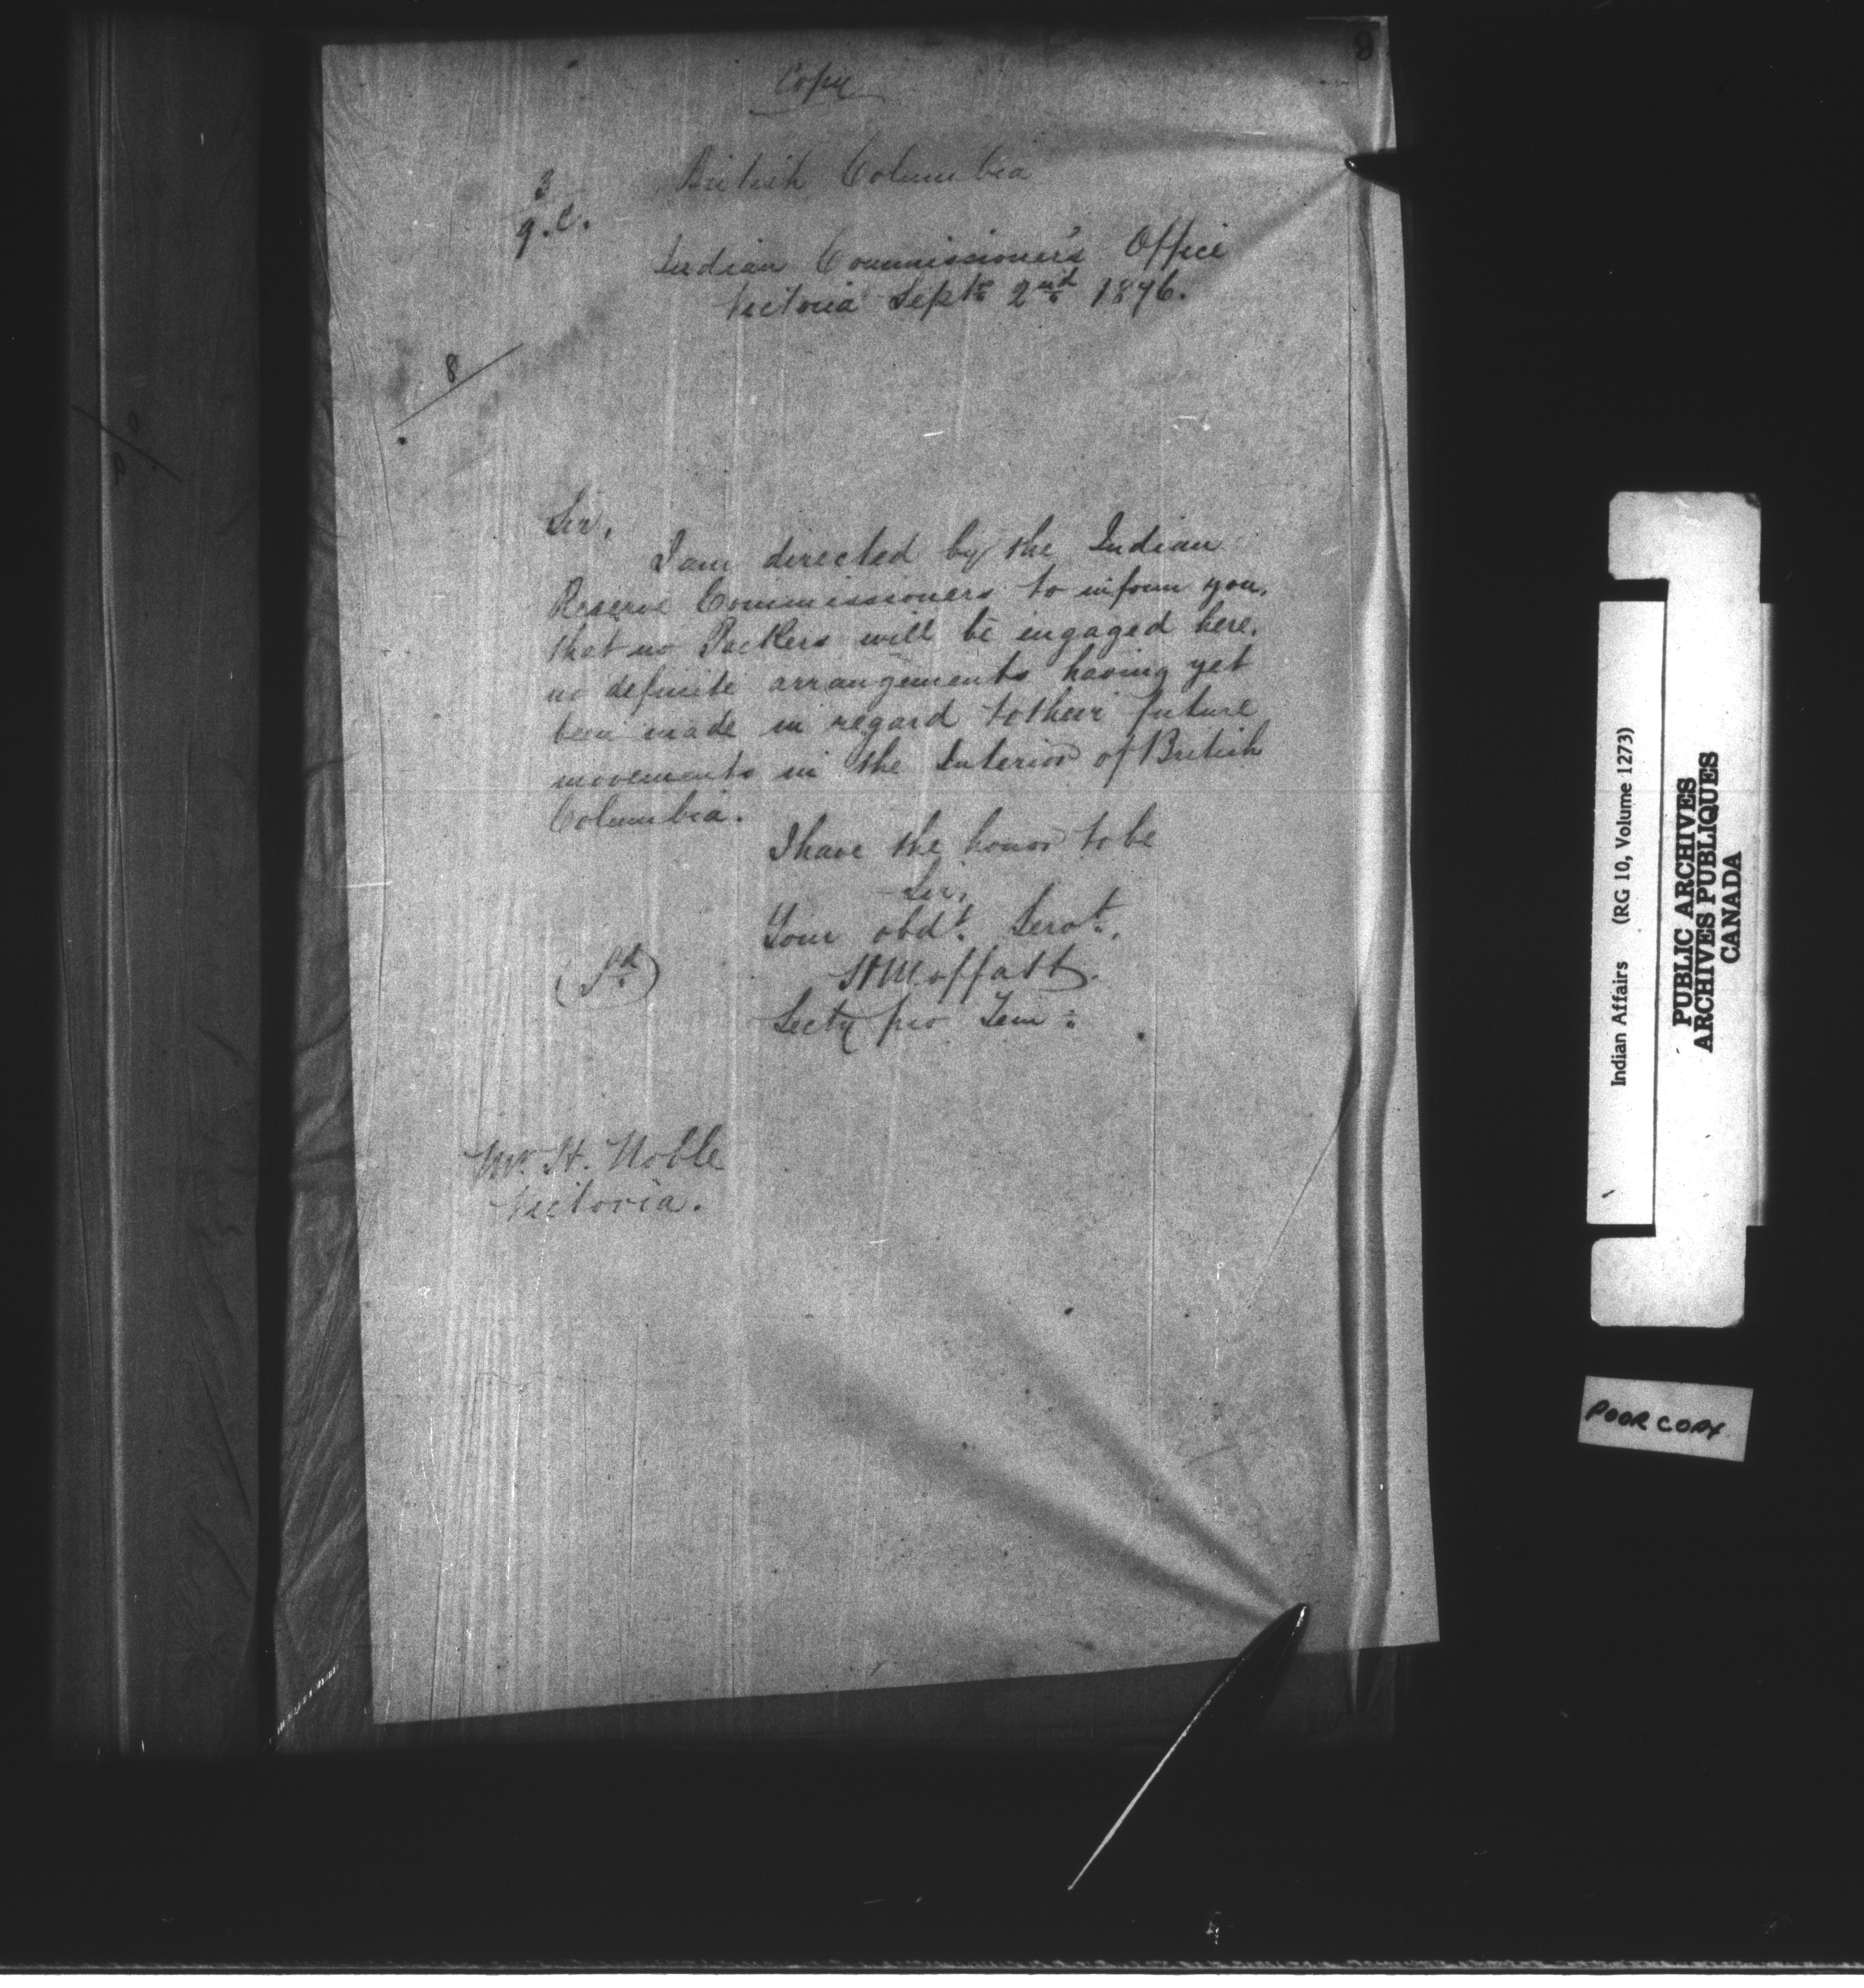 9
Copy
British Columbia
3
g.C.
Indian Commissioner's Office
Victoria Sept: 2nd 1876.
8
Sir,
I am directed by the Indian
Reserve Commissioners to inform you,
that no Packers will be engaged here,
no definite arrangements having yet
been made in regard to their future
movements in the Interior of British
Columbia.
I have the honor to be
Sir,
Your obdt. Servt.,
(Sd) H Moffatt.
Secty pro Tem:
Mr. H. Noble
Victoria.
Indian Affairs (RG 10, Volume 1273)
PUBLIC ARCHIVES
ARCHIVES PUBLIQUES
CANADA
POOR COPY